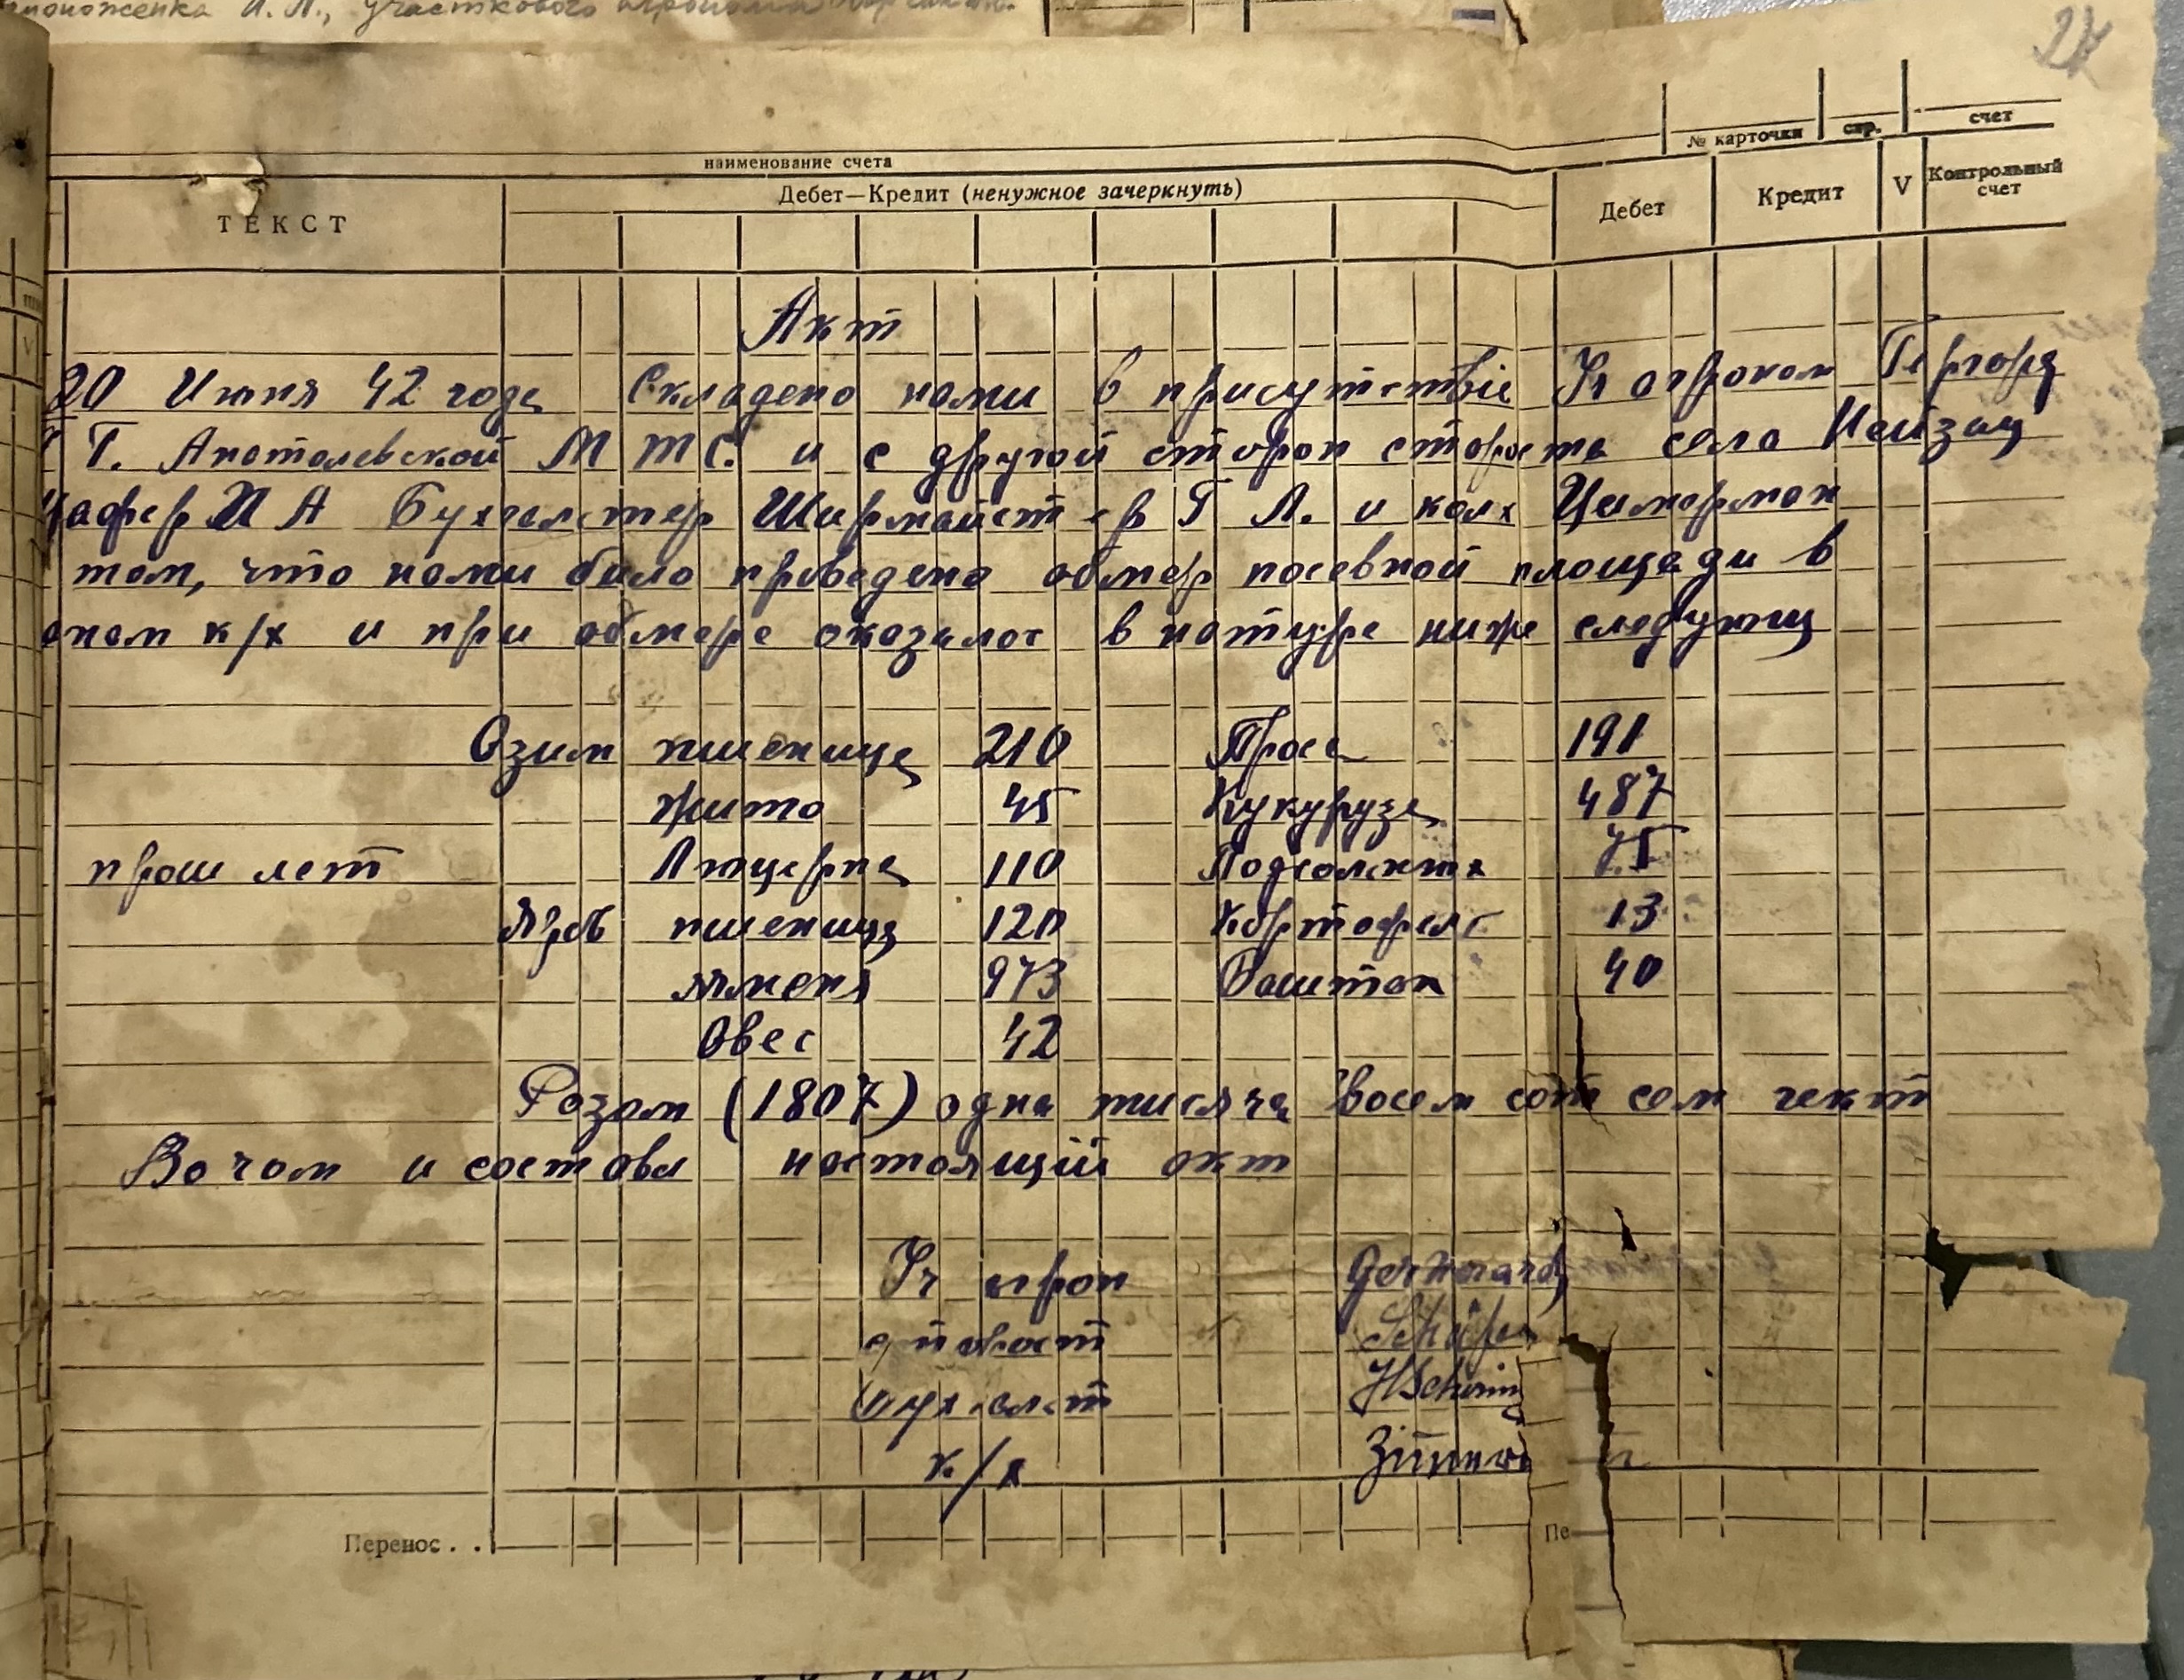 участкового агронома
27
№ карточки стр. счет
наименование счета
ТЕКСТ Дебет—Кредит (ненужное зачеркнуть) Дебет Кредит V Контрольный счет
Акт
20 Июня 42 года Складено нами в присутствіе Уч агроном Гергорд
Г. Анатолевской М Т С. и с другой сторон староста села Нейзац
Шафер И А Бухгалтер Ширмайстер Г А. и колх Цимерман
том, что нами било проведено обмер посевной площади в
оном к/х и при обмере оказалос в натуре ниже следующ
Озим пшеница 210 Просо 191
Жито 45 Кукуруза 487
прош лет Люцерна 110 Подсолнух 75
Яров пшеница 120 Картофель 13
ячмень 973 Баштан 40
Овес 42
Розом (1807) одна тисяча восем сот сем гект
Во чом и состовл настоящий окт
Уч агрон Gerhardt
старост Schäfer
бухгалт HSchirm
к/х Zimmer
Перенос . . Пе